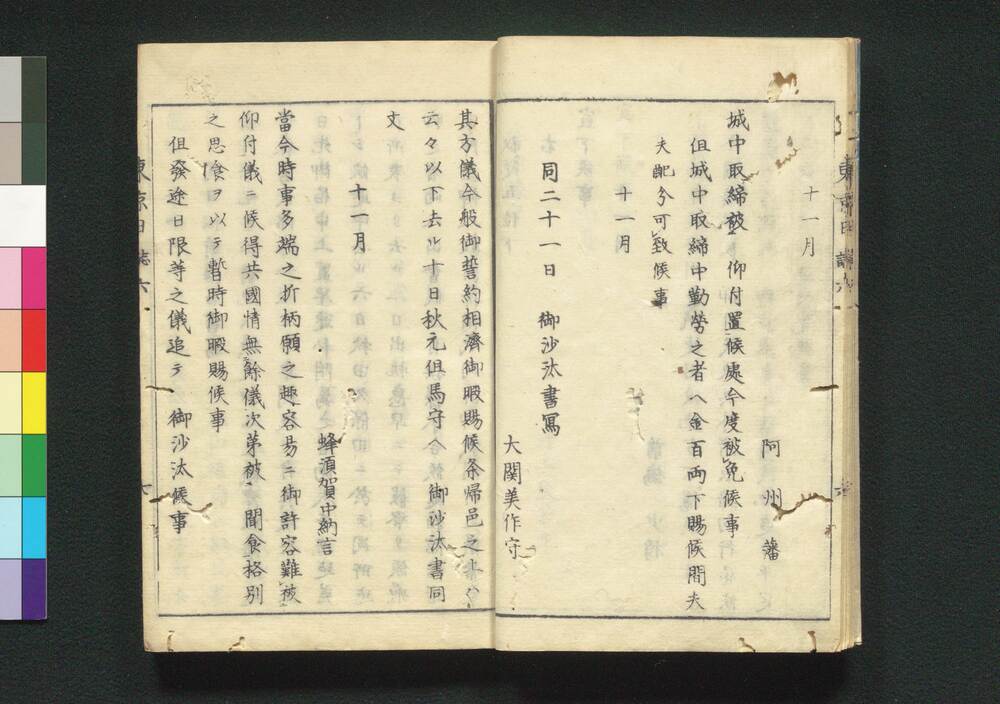 十一月
阿州藩
城中取締被　仰付置候處今度被免候事
但城中取締中勤勞之者ヘ金百両下賜候間夫
夫配分可致候事
十一月
同二十一日　御沙汰書寫
大関美作守
其方儀今般御誓約相濟御暇賜候条帰邑之上ハ
云々以下去ル十日秋元但馬守ヘ御沙汰書同
文
十一月
蜂須賀中納言
當今時事多端之折柄願之趣容易ニ御許容難被
仰付儀ニ候得共國情無餘儀次第被　聞食格別
之思食ヲ以テ暫時御暇賜候事
但發途日限等之儀追テ　御沙汰候事
東京日誌六
六